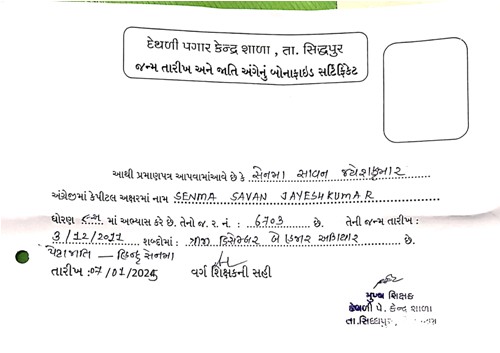 દેથળી પગાર કેન્દ્ર શાળા , તા. સિદ્ધપુર
જન્મ તારીખ અને જાતિ અંગેનું બોનાફાઇડ સર્ટિફિકેટ
આથી પ્રમાણપત્ર આપવામાંઆવે છે કે સેનમા સાવન જયેશકુમાર
અંગ્રેજીમાં કેપીટલ અક્ષરમાં નામ SENMA SAVAN JAYESHKUMAR
ધોરણ માં અભ્યાસ કરે છે. તેનો જ. ર. નં. : 6703 છે. તેની જન્મ તારીખ :
3/12/2011 શબ્દોમાં : ત્રીજી ડિસેમ્બર બે હજાર અગિયાર છે.
પેટાજાતિ — હિન્દુ સેનમા
તારીખ :07/01/2025 વર્ગ શિક્ષકની સહી
મુખ્ય શિક્ષક
દેથળી પે. કેન્દ્ર શાળા
તા.સિધ્ધપુર,